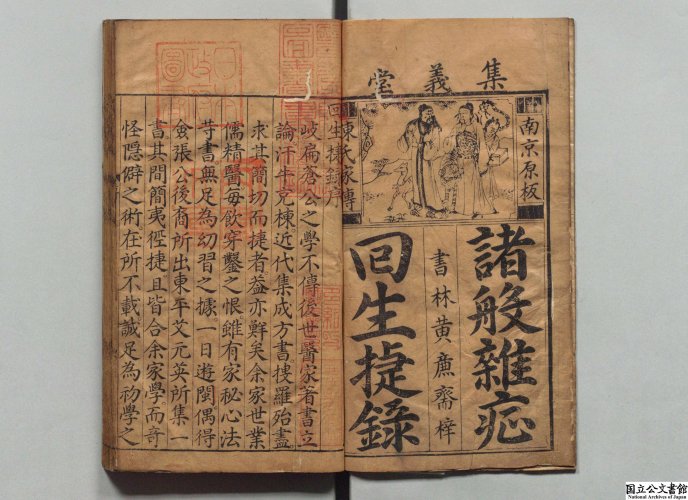 集義堂
南京原板
諸般雜症
書林黃廉齋梓
回生捷錄
東氏家傳
回生捷錄序
岐扁蒼公之學不傳後世醫家著書立
論汗牛充棟近代集成方書摟羅殆盡
求其簡切而捷者益亦鮮矣余家世業
儒精醫每飲穿鑿之恨雖有家秘心法
等書無足為幼習之據一日遊閩偶得
僉張公後裔所出東平艾元英所集一
書其間簡夷徑捷且皆合余家學而奇
怪隱僻之術在所不載誠足為初學之
国立公文書館
National Archives of Japan